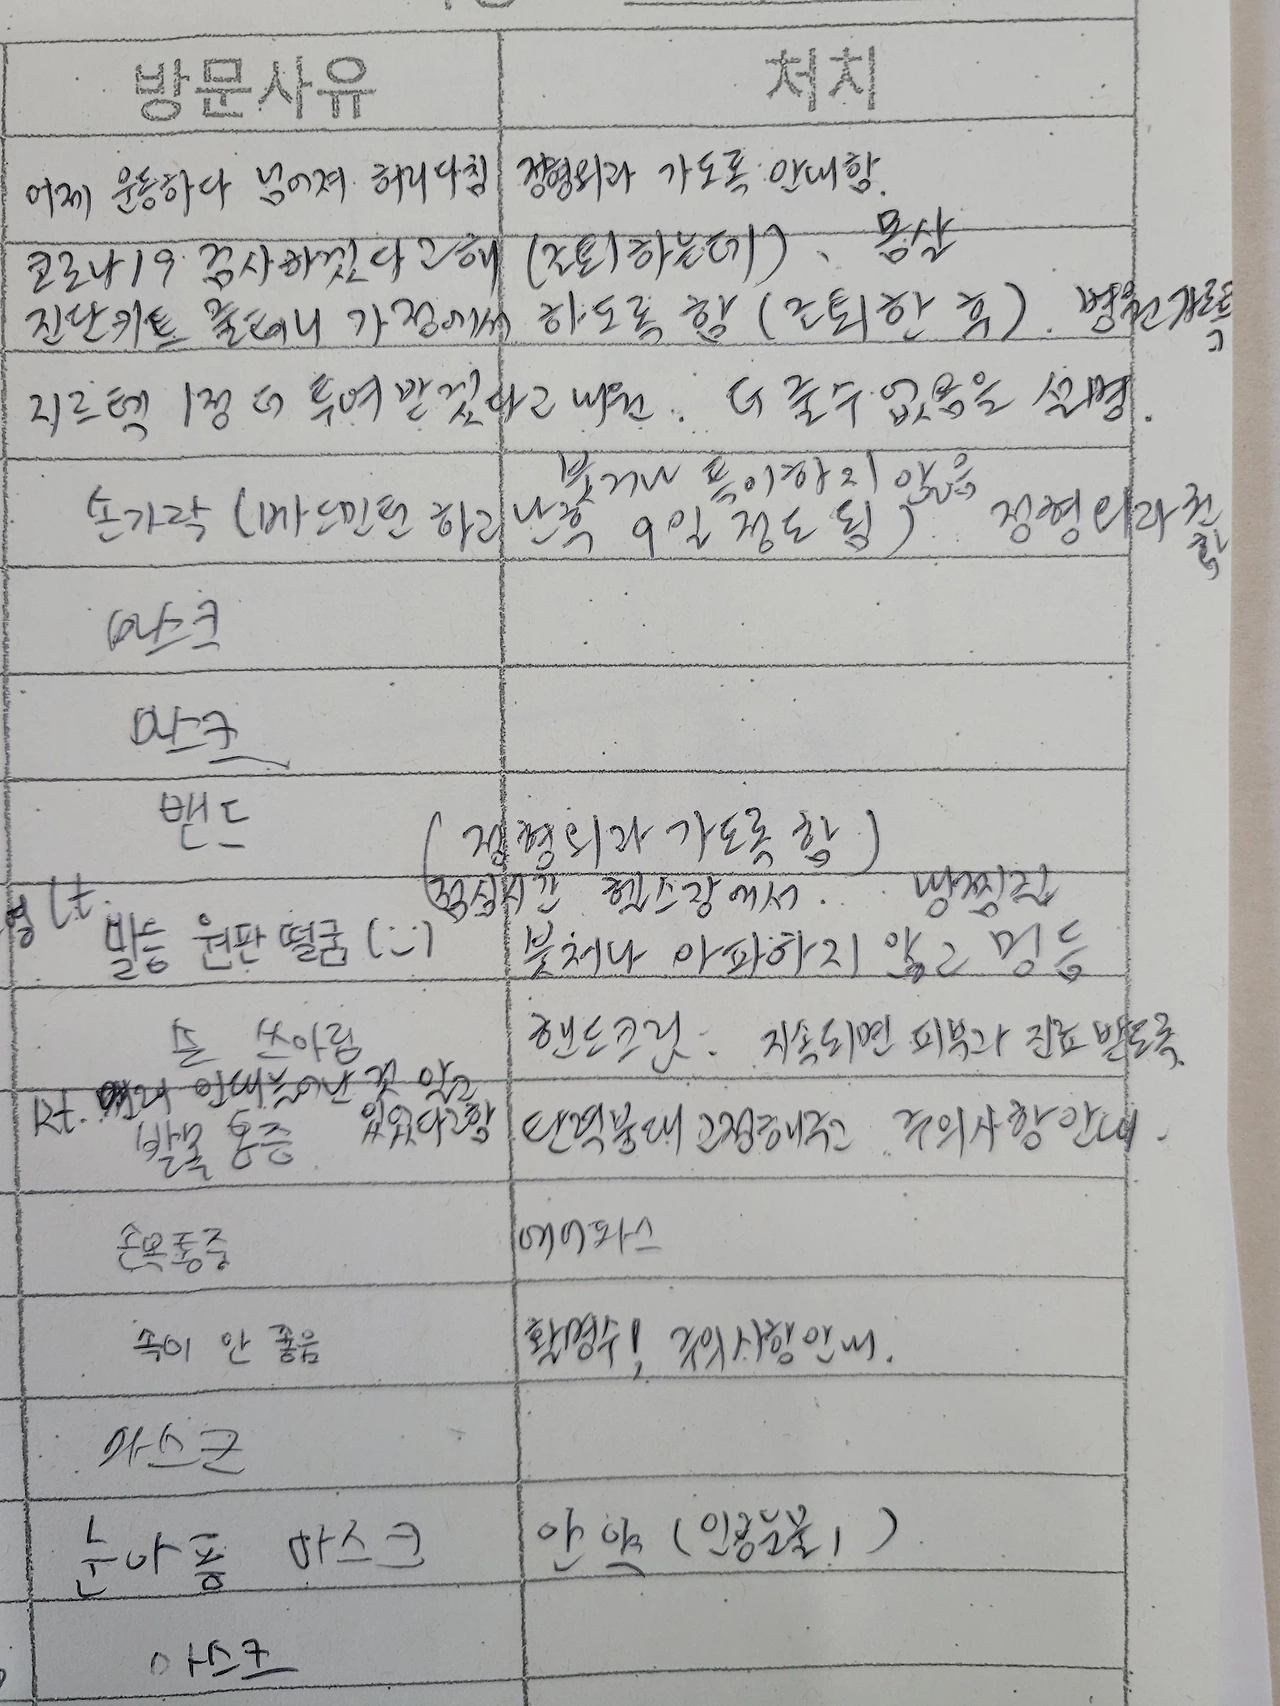 방문사유 처치
어제 운동하다 넘어져 허리다침 정형외과 가도록 안내함.
몸살
코로나19 검사하겠다고해 (조퇴하는데).
진단키트 줄테니 가정에서 하도록 함 (조퇴한 후). 병원가도록
지르텍 1정 더 투여받겠다고 내원. 더 줄수 없음을 설명.
붓거나 특이하지 않음
손가락 (배드민턴 하고 난후 9일 정도 됨). 정형외과 권함
마스크
마스크
밴드
(정형외과 가도록 함)
점심시간 헬스장에서. 냉찜질
발등 원판 떨굼 붓거나 아파하지 않고 멍듬
손 쓰아림 핸드크림. 지속되면 피부과 진료받도록
Rt. 원래 인대 늘어난 것 알고
있었다고함
발목 통증 탄력붕대 고정해주고 주의사항안내.
손목통증 에어파스
속이 안 좋음 활명수1 주의사항안내.
마스크
눈아픔 마스크 안약 (인공눈물1)
마스크